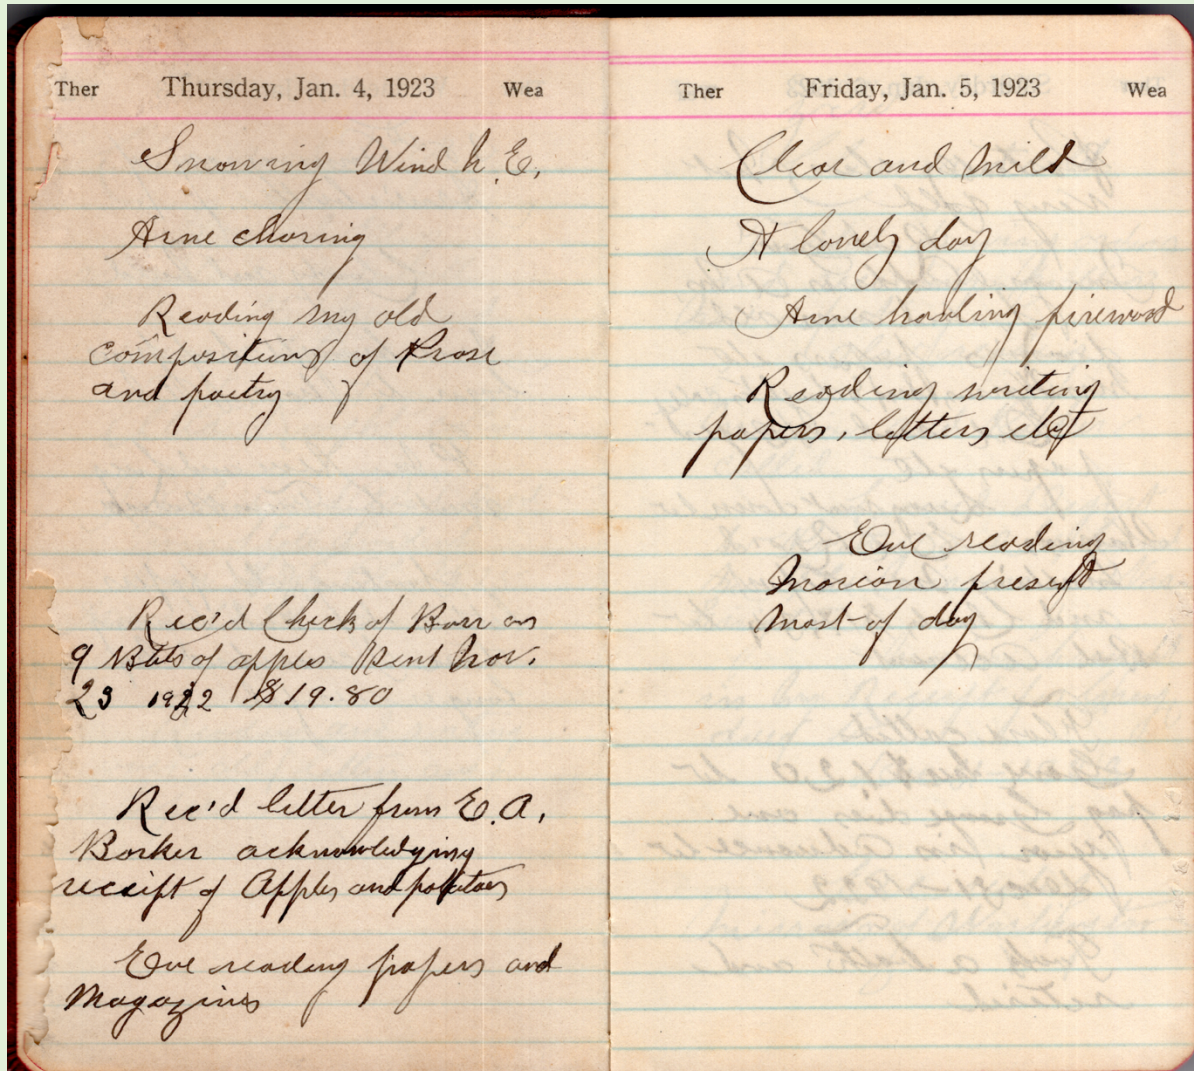 Ther Thursday, Jan. 4, 1923 Wea
Snowing Wind N.E.
Arne choring
Reading my old
compositions of Prose
and poetry
Rec'd Check of Barr on
9 Bbls of apples sent Nov.
23 1922 $19.80
Rec'd letter from E.A.
Barker acknowledging
receipt of Apples and potatoes
Eve reading papers and
Magazines
Ther Friday, Jan. 5, 1923 Wea
Clear and mild
A lonely day
Arne hauling firewood
Reading writing
papers, letters etc
Eve reading
Marion present
most of day